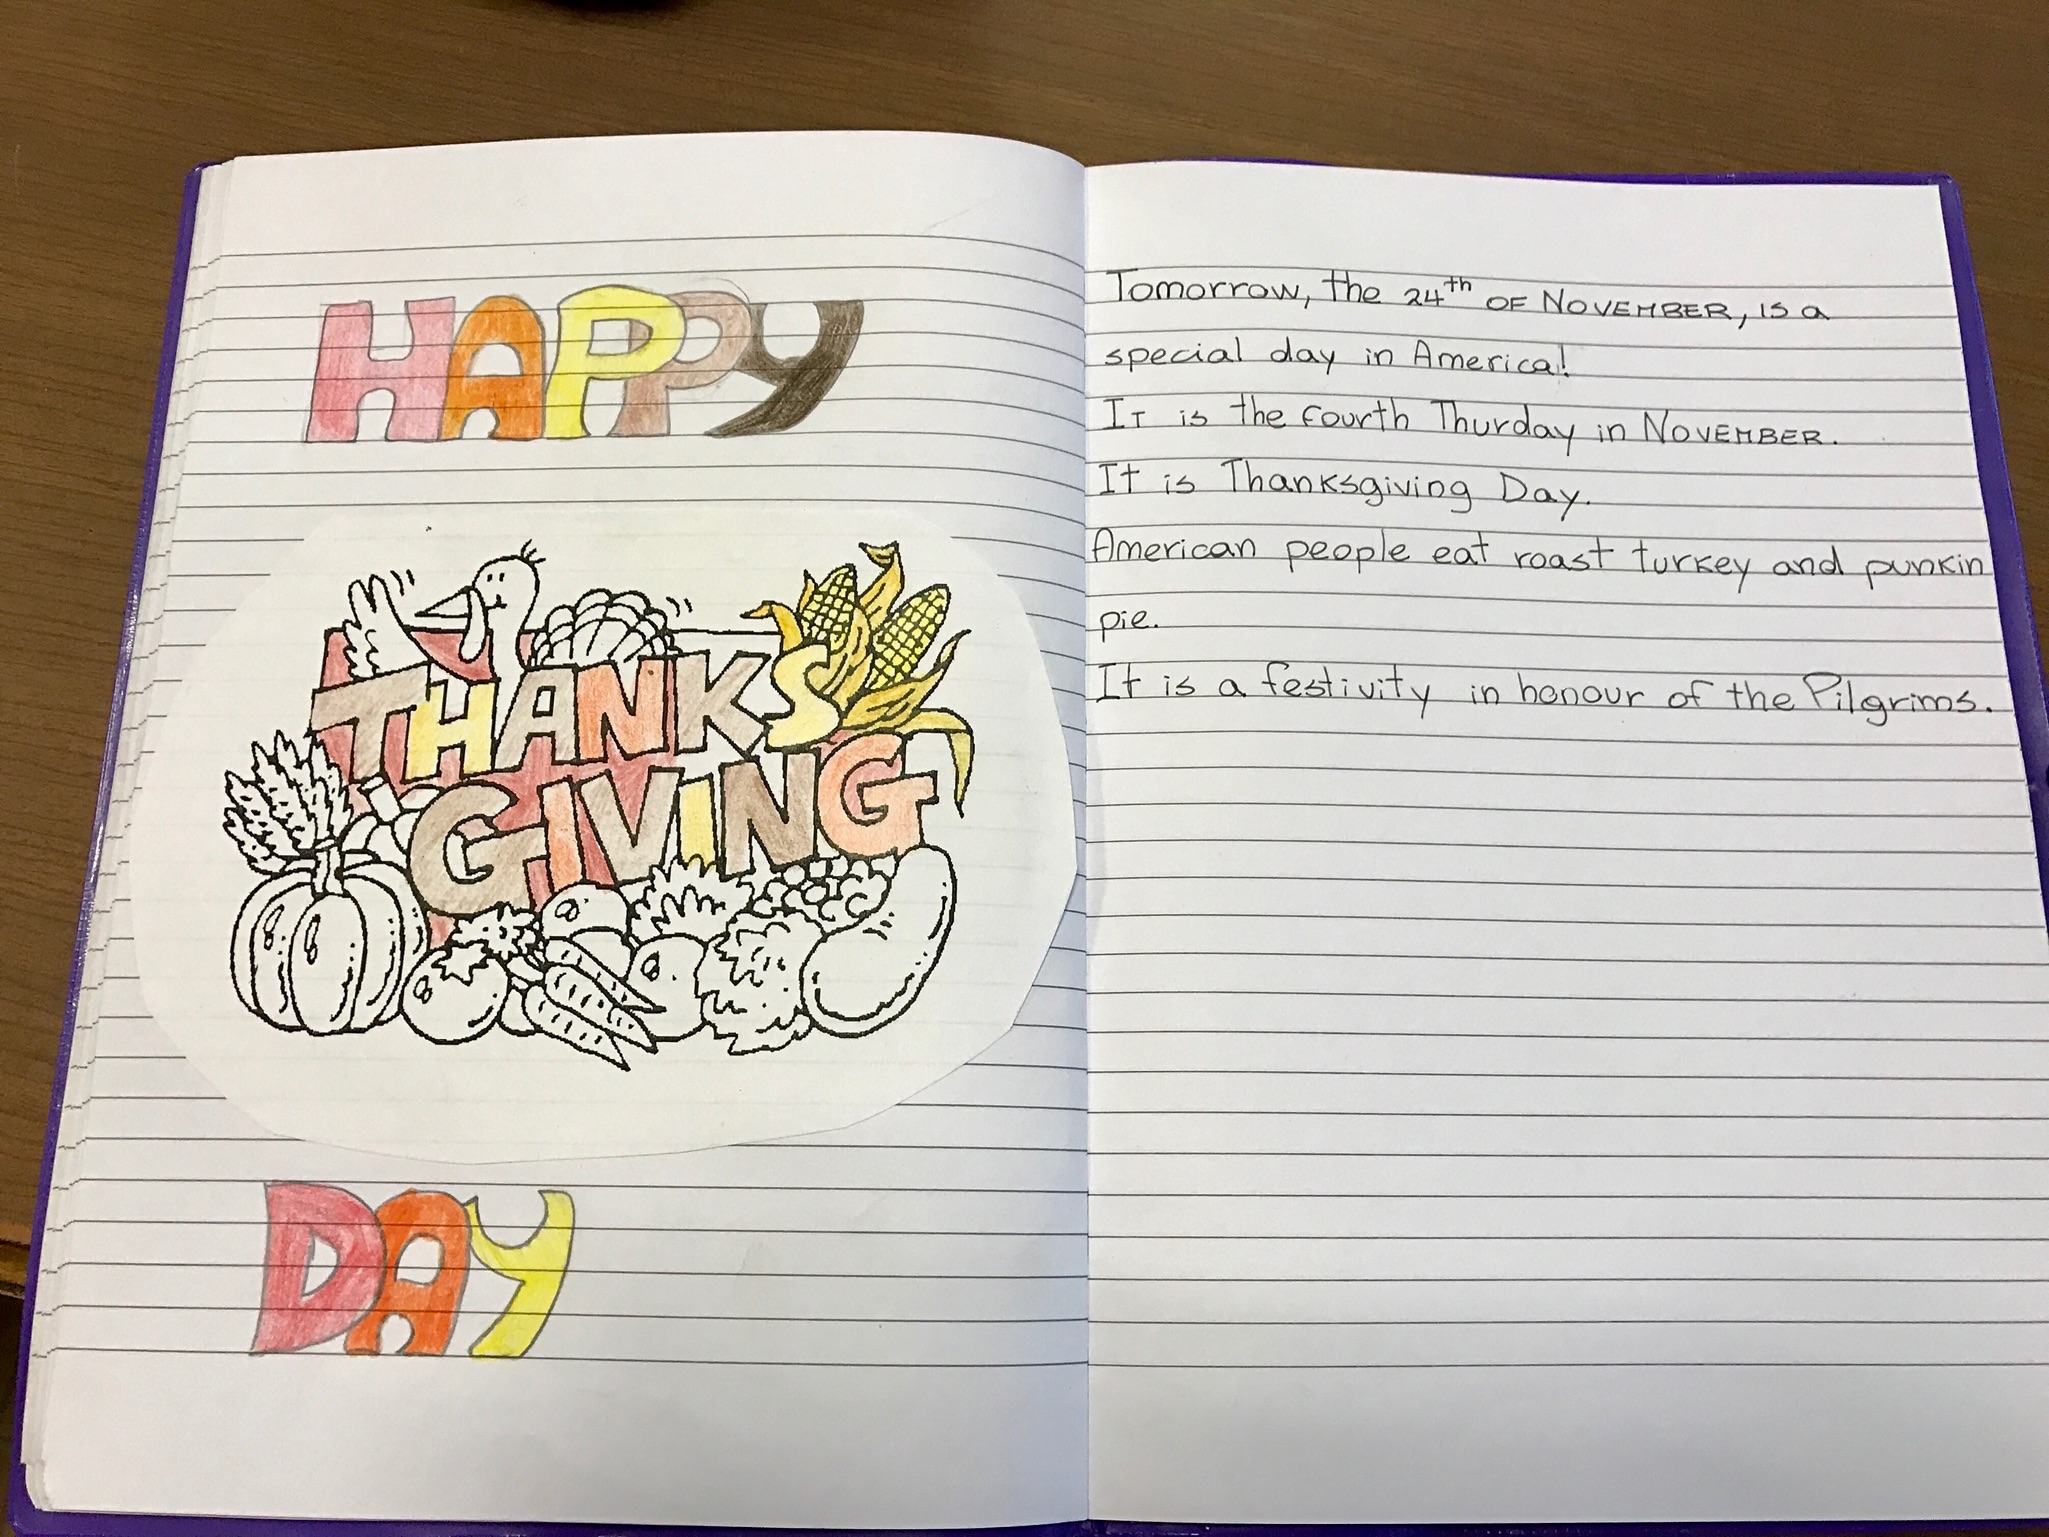 HAPPY
THANKS
GIVING
DAY
Tomorrow, the 24th OF NOVEMBER, is a
special day in America!
IT is the fourth Thurday in NOVEMBER.
It is Thanksgiving Day.
American people eat roast turkey and punkin
pie.
It is a festivity in honour of the Pilgrims.